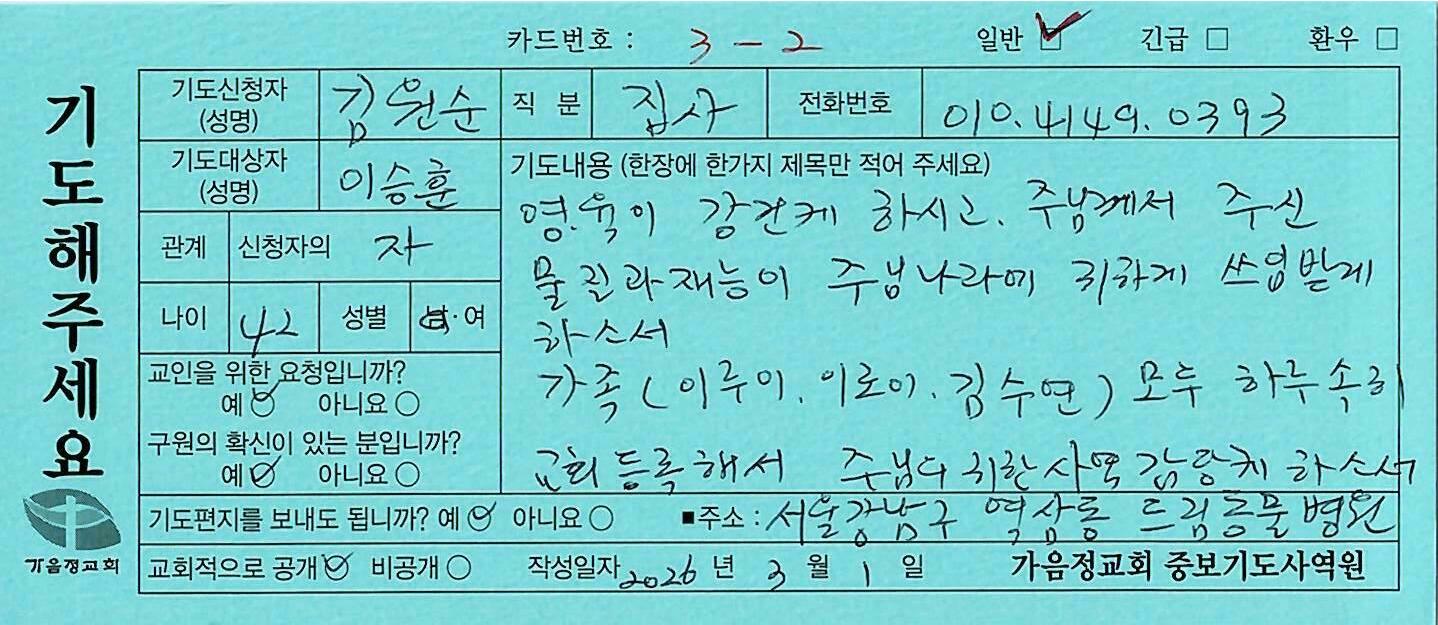 카드번호 : 3 - 2 일반 ☑ 긴급 □ 환우 □
기도해주세요
기도신청자 (성명) 김원순 직 분 집사 전화번호 010.4149.0393
기도대상자 (성명) 이승훈
관계 신청자의 자
나이 42 성별 남·여
교인을 위한 요청입니까?
예 ☑ 아니요 ○
구원의 확신이 있는 분입니까?
예 ☑ 아니요 ○
기도내용 (한장에 한가지 제목만 적어 주세요)
영.육이 강건케 하시고. 주님께서 주신
물질과 재능이 주님나라에 귀하게 쓰임받게
하소서
가족 (이루이. 이로이. 김수연) 모두 하루속히
교회등록해서 주님의 귀한사역 감당케 하소서
기도편지를 보내도 됩니까? 예 ☑ 아니요 ○ ■주소 : 서울강남구 역삼동 드림동물병원
교회적으로 공개 ☑ 비공개 ○ 작성일자 2026 년 3 월 1 일 가음정교회 중보기도사역원
가음정교회